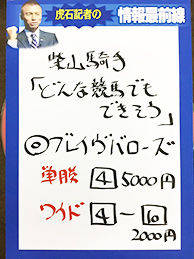 虎石記者の
情報最前線
柴山騎手
「どんな競馬でも
できそう」
◎ブレイヴバローズ
単勝 4 5000円
ワイド 4-6
2000円